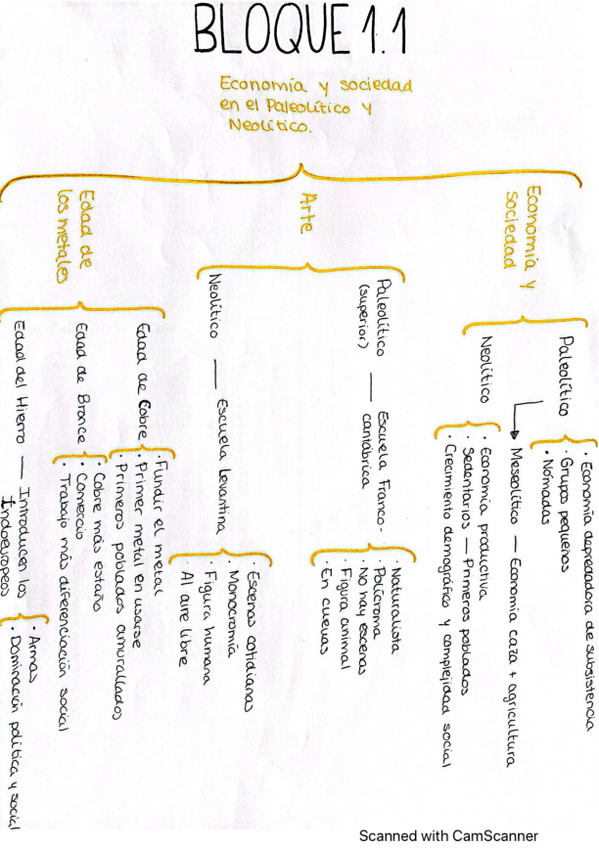 BLOQUE 1.1
Economía y sociedad
en el Paleolítico y
Neolítico.
Economía y
sociedad
Paleolítico
· Economía depredadora de subsistencia
· Grupos pequeños
· Nómadas
Meseolítico — Economía caza + agricultura
Neolítico
· Economía productiva
· Sedentarios — Primeros poblados
· Crecimiento demográfico y complejidad social
Arte
Paleolítico
(superior)
— Escuela Franco-
cantábrica
· Naturalista
· Polícroma
· No hay escenas
· Figura animal
· En cuevas
Neolítico — Escuela Levantina
· Escenas cotidianas
· Monocromía
· Figura humana
· Al aire libre
Edad de
los metales
Edad de Cobre
· Fundir el metal
· Primer metal en usarse
· Primeros poblados amurallados
Edad de Bronce
· Cobre más estaño
· Comercio
· Trabajo más diferenciación social
Edad del Hierro — Introducen los
Indoeuropeos
· Armas
· Dominación política y social
Scanned with CamScanner